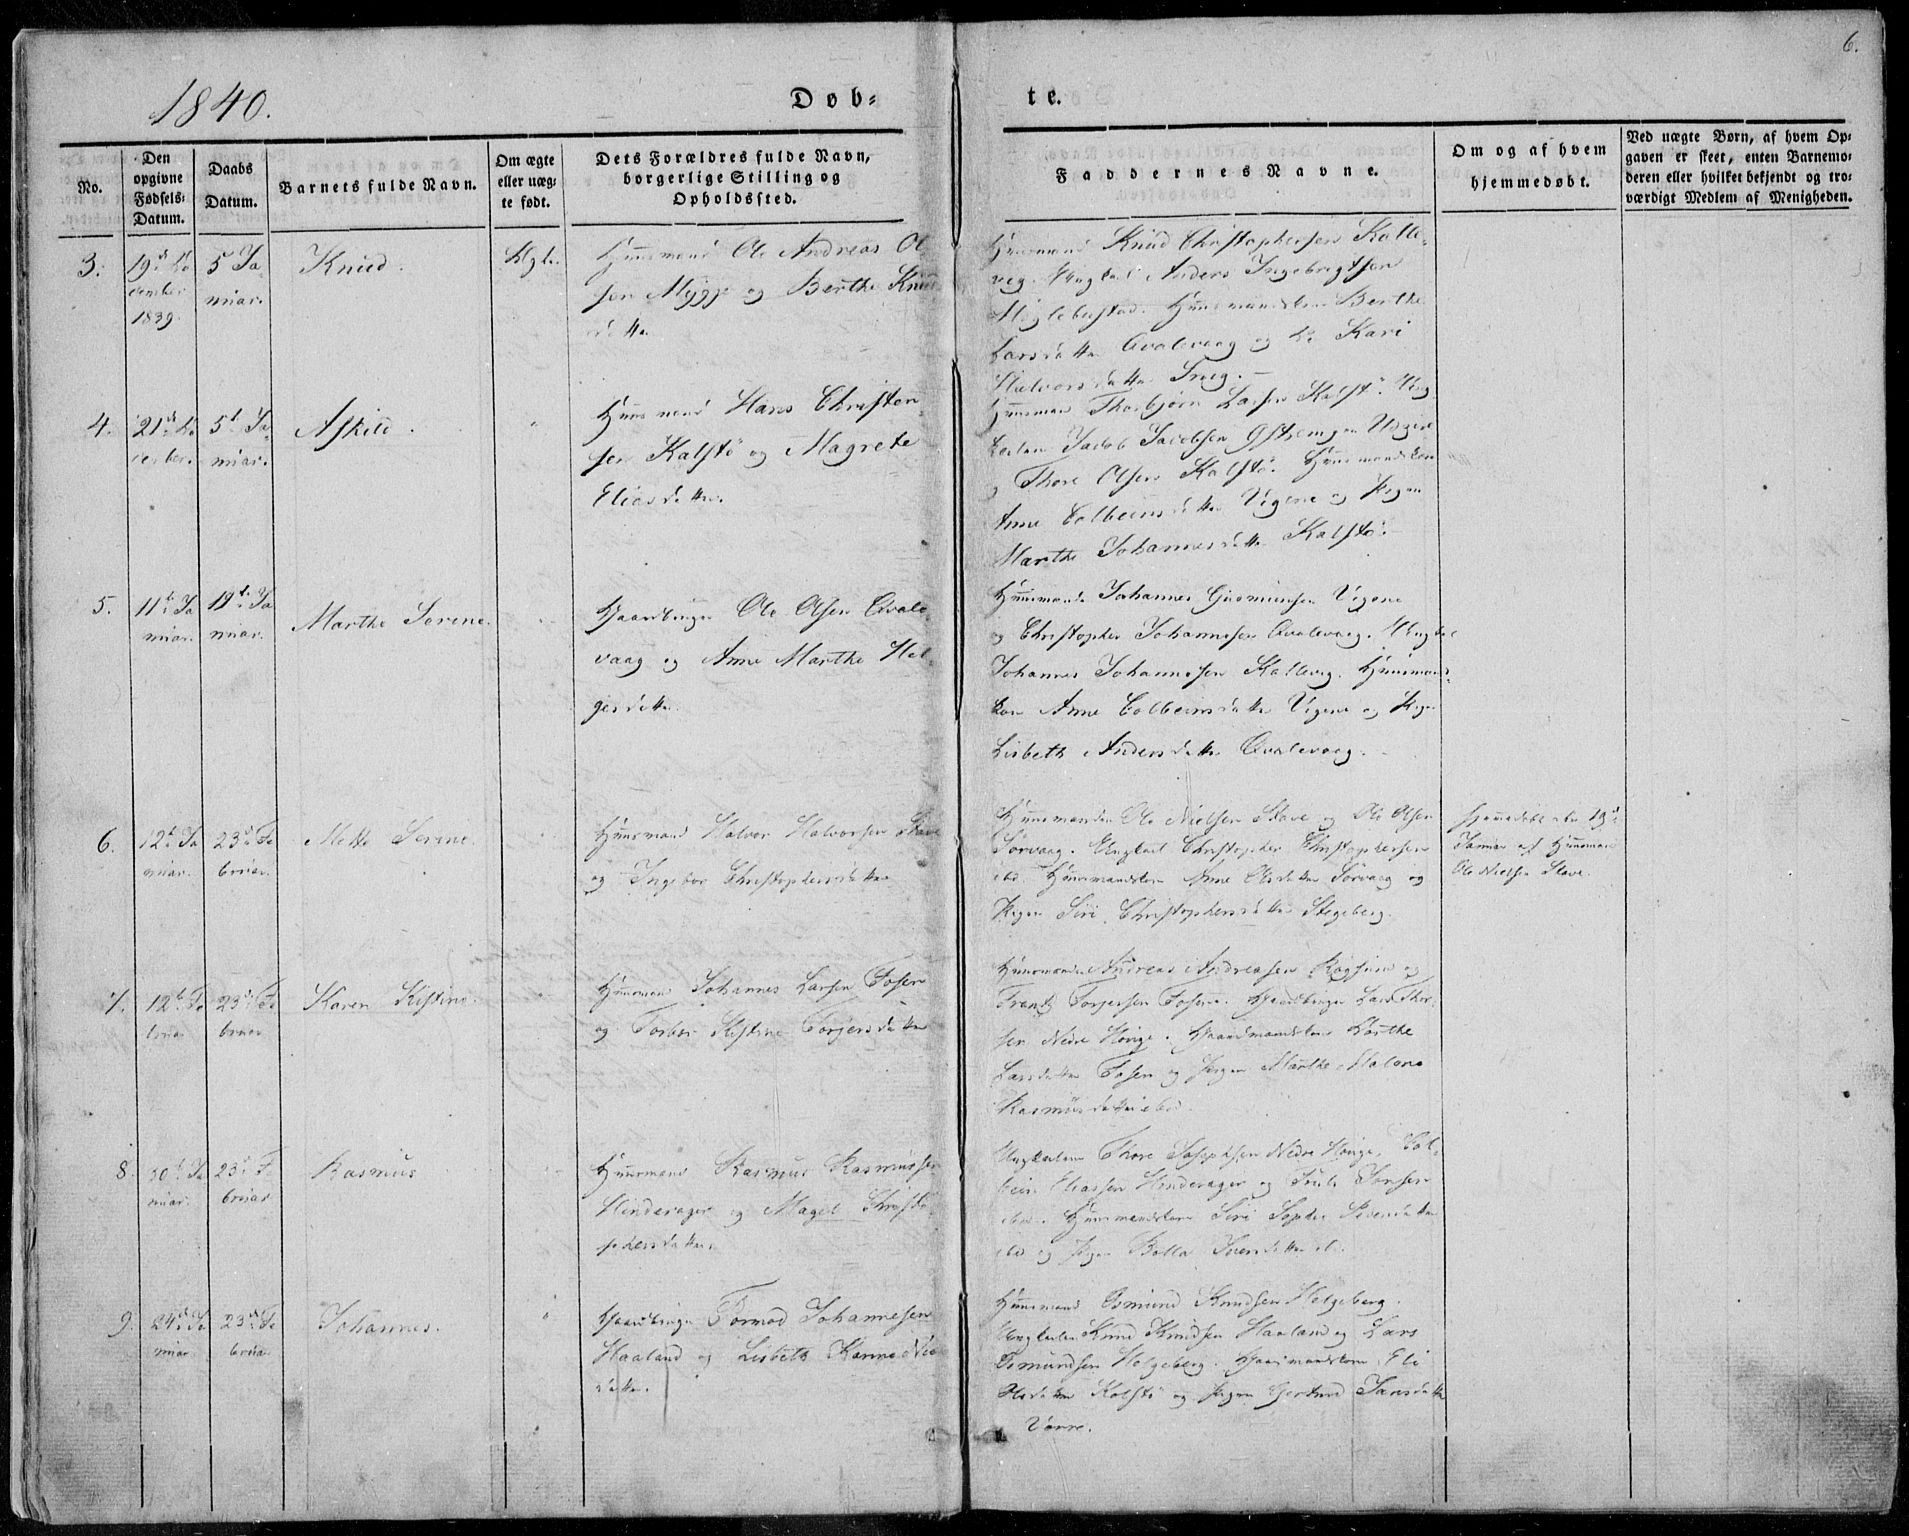 6.
1840.
Døb-
te.
No.
Den opgivne Fødsels-Datum.
Daabs Datum.
Barnets fulde Navn.
Om ægte eller uæg-te født.
Dets Forældres fulde Navn, borgerlige Stilling og Opholdssted.
Faddernes Navne.
Om og af hvem hjemmedøbt.
Ved uægte Børn, af hvem Op-
gaven er skeet, enten Barnemo-
deren eller hvilket bekjendt og tro-
værdigt Medlem af Menigheden.
3.
19de De
cember
1839.
5 Ja
nuar.
Knud.
Ægte.
Huusmand Ole Andreas Ol
sen Mygge og Berthe Knud
datter
Huusmand Knud Christophersen Kalle-
veg. Ungkarl Anders Ingebregtsen
Høglebustad. Huusmandskone Berthe
Larsdatter Qvalevaag og do Kari
Halvorsdatter Sneg.
4.
21de De
cember.
5t Ja
nuar.
Askild.
Huusmand Hans Christen
sen Kalstø og Magrete
Eliasdatter.
Huusman Thorbjørn Larsen Kalstø. Ung
karlen Jacob Jacobsen
og Thore Olsen Kalstø. Huusmandskone
Anne Colbeinsdatter Vigene og Pigen
Marthe Johannesdatter Kalstø.
5.
11te Ja
nuar.
19de Ja
nuar.
Marthe Serine.
Gaardbruger Ole Olsen Qvale
vaag og Anne Marthe Hel
gesdatter.
Huusmænd Johannes Gudmundsen Vigene
og Christopher Johannesen Qvalevaag. Ungkarl
Johannes Johannesen Kalleveg. Huusmands-
kone Anne Colbeinsdatter Vigene og Pigen
Lisbeth Andersdatter Qvalevaag.
6.
12te Ja
nuar.
23de Fe
bruar.
Mette Serine.
Huusmand Halvor Halvorsen Stave
og Ingebor Christophersdatter
Huusmænden Ole Nielsen Stave og Ole Olsen
Sørvaag. Ungkarl Christopher Christophersen
ibd. Huusmandskone Anne Olsdatter Sørvaag og
Pigen Siri Christophersdatter Stegeberg.
hjemmedøbt den 19de
Januar af Huusmand
Ole Nielsen Stave.
7.
12te Fe
bruar
23de Fe
bruar
Karen Kistine.
Huusmand Johannes Larsen Fosen
og Torbor Kistine Torjersdatter
Huusmænd Andreas Andreasen Røgsund og
Frantz Torjersen Fosen. Gaardbruger Lars Thor
sen Nedre Hinge. Gaardmandskone Dorthe
Larsdatter Fosen og Pigen Marthe Malene
Rasmusdatter ibd.
8.
30te Ja
nuar.
23de Fe
bruar.
Rasmus
Huusmand Rasmus Rasmussen
Hinderager og Magel Christo
phersdatter.
Ungkarlene Thore Josephsen Nedre Hinge, Col-
bein Eliassen Hinderager og
ibd. Huusmandskone Siri Sophie
ibd og Pigen Bolla Iversdatter ibd.
9.
24de Ja
nuar.
23de Fe
bruar
Johannes.
Gaardbruger Tormod Johannesen
Haaland og Lisbeth Karine Nils
datter.
Huusmand Osmund Knudsen Helgeberg.
Ungkarlen Knud Knudsen Haaland og Lars
Osmundsen Helgeberg. Gaardmandskone Eli
Olsdatter Kalstø og Pigen Gjertrud Jansdatter
Vorre.